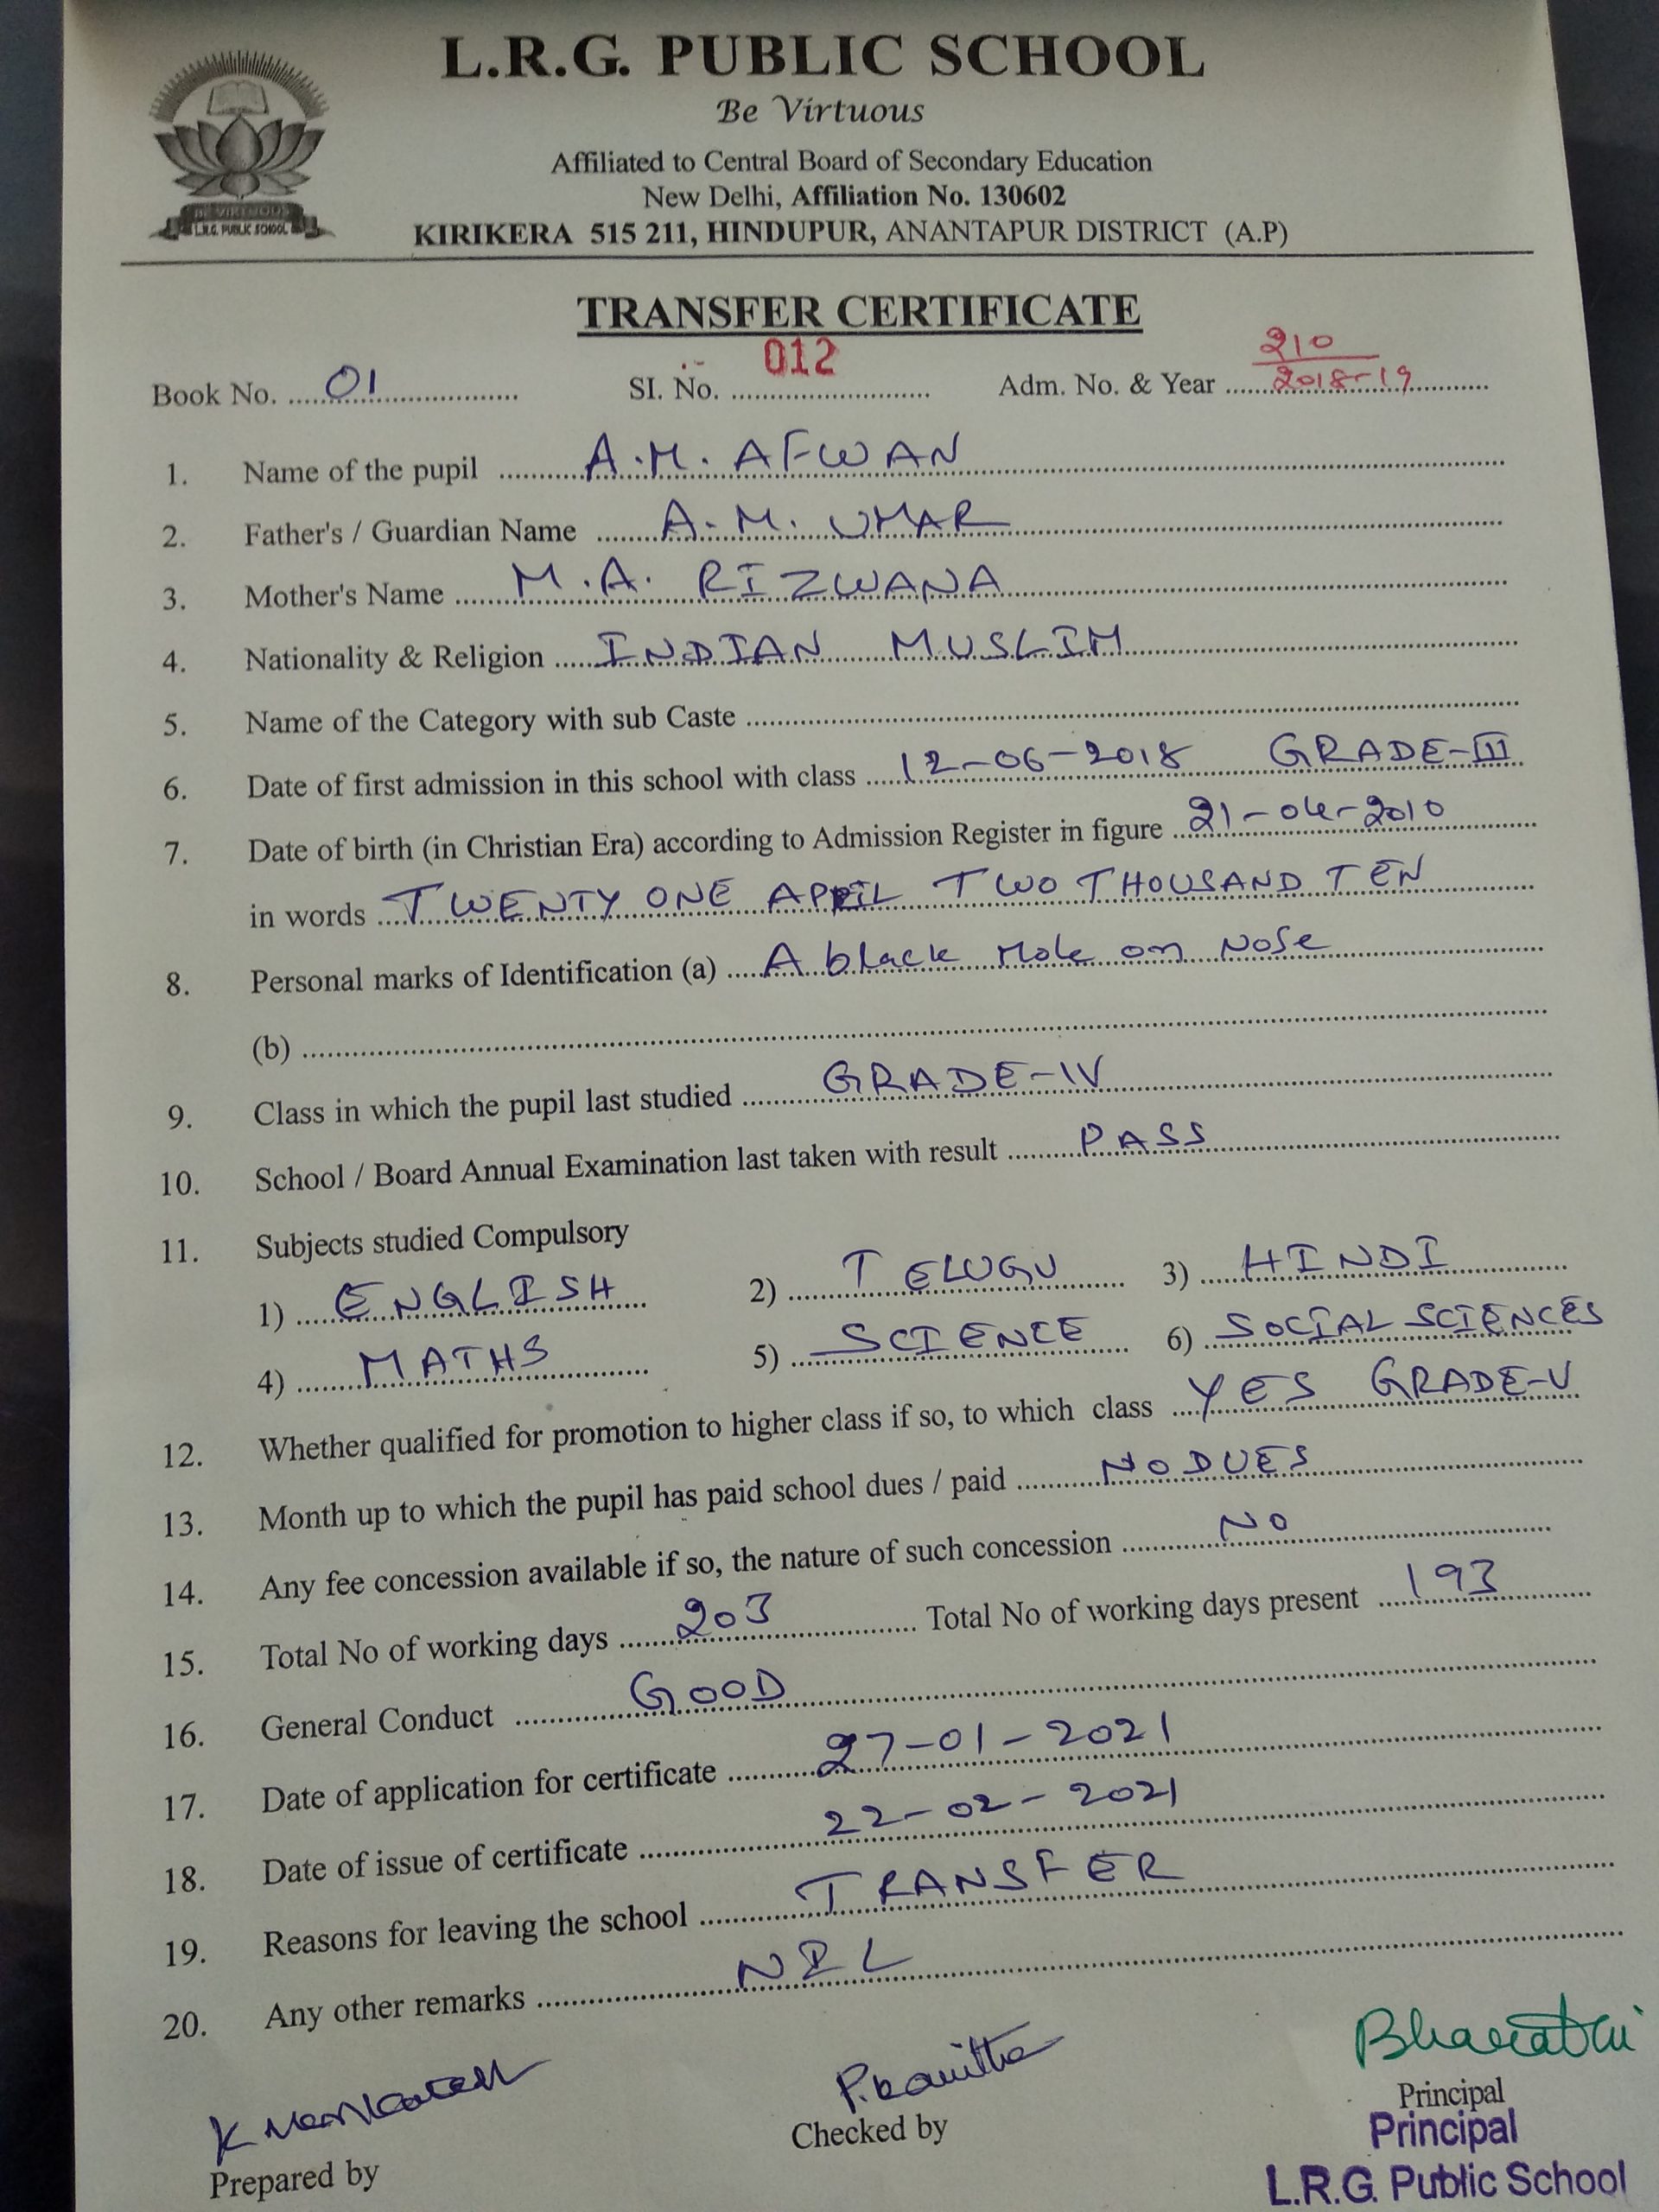 L.R.G. PUBLIC SCHOOL
Be Virtuous
Affiliated to Central Board of Secondary Education
New Delhi, Affiliation No. 130602
KIRIKERA 515 211, HINDUPUR, ANANTAPUR DISTRICT (A.P)
BE VIRTUOUS
L.R.G. PUBLIC SCHOOL
TRANSFER CERTIFICATE
Book No. 01 SI. No. 012 Adm. No. & Year 210/2018-19
1. Name of the pupil A.M. AFWAN
2. Father's / Guardian Name A.M. UMAR
3. Mother's Name M.A. RIZWANA
4. Nationality & Religion INDIAN MUSLIM
5. Name of the Category with sub Caste
6. Date of first admission in this school with class 12-06-2018 GRADE-III
7. Date of birth (in Christian Era) according to Admission Register in figure 21-04-2010
in words TWENTY ONE APRIL TWO THOUSAND TEN
8. Personal marks of Identification (a) A black Mole on Nose
(b)
9. Class in which the pupil last studied GRADE-IV
10. School / Board Annual Examination last taken with result PASS
11. Subjects studied Compulsory
1) ENGLISH 2) TELUGU 3) HINDI
4) MATHS 5) SCIENCE 6) SOCIAL SCIENCES
12. Whether qualified for promotion to higher class if so, to which class YES GRADE-V
13. Month up to which the pupil has paid school dues / paid NO DUES
14. Any fee concession available if so, the nature of such concession NO
15. Total No of working days 203 Total No of working days present 193
16. General Conduct GOOD
17. Date of application for certificate 27-01-2021
18. Date of issue of certificate 22-02-2021
19. Reasons for leaving the school TRANSFER
20. Any other remarks NIL
K Venkatesh P. Kavitha Bharathi
Prepared by Checked by Principal
Principal
L.R.G. Public School